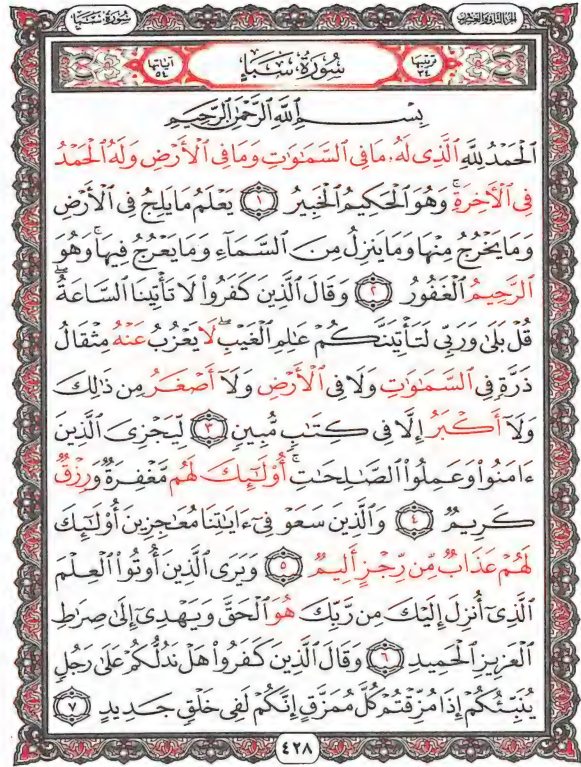 الجزء الثاني والعشرون
سُورَةُ سَبَأٍ
ترتيبها ٣٤
سُورَةُ سَبَأٍ
آياتها ٥٤
بِسْمِ ٱللَّهِ ٱلرَّحْمَٰنِ ٱلرَّحِيمِ
ٱلْحَمْدُ لِلَّهِ ٱلَّذِى لَهُۥ مَا فِى ٱلسَّمَٰوَٰتِ وَمَا فِى ٱلْأَرْضِ وَلَهُ ٱلْحَمْدُ
فِى ٱلْءَاخِرَةِ ۚ وَهُوَ ٱلْحَكِيمُ ٱلْخَبِيرُ ١ يَعْلَمُ مَا يَلِجُ فِى ٱلْأَرْضِ
وَمَا يَخْرُجُ مِنْهَا وَمَا يَنزِلُ مِنَ ٱلسَّمَآءِ وَمَا يَعْرُجُ فِيهَا ۚ وَهُوَ
ٱلرَّحِيمُ ٱلْغَفُورُ ٢ وَقَالَ ٱلَّذِينَ كَفَرُوا۟ لَا تَأْتِينَا ٱلسَّاعَةُ ۖ
قُلْ بَلَىٰ وَرَبِّى لَتَأْتِيَنَّكُمْ عَٰلِمِ ٱلْغَيْبِ ۖ لَا يَعْزُبُ عَنْهُ مِثْقَالُ
ذَرَّةٍ فِى ٱلسَّمَٰوَٰتِ وَلَا فِى ٱلْأَرْضِ وَلَآ أَصْغَرُ مِن ذَٰلِكَ
وَلَآ أَكْبَرُ إِلَّا فِى كِتَٰبٍ مُّبِينٍ ٣ لِّيَجْزِىَ ٱلَّذِينَ
ءَامَنُوا۟ وَعَمِلُوا۟ ٱلصَّٰلِحَٰتِ ۚ أُو۟لَٰٓئِكَ لَهُم مَّغْفِرَةٌ وَرِزْقٌ
كَرِيمٌ ٤ وَٱلَّذِينَ سَعَوْ فِىٓ ءَايَٰتِنَا مُعَٰجِزِينَ أُو۟لَٰٓئِكَ
لَهُمْ عَذَابٌ مِّن رِّجْزٍ أَلِيمٌ ٥ وَيَرَى ٱلَّذِينَ أُوتُوا۟ ٱلْعِلْمَ
ٱلَّذِىٓ أُنزِلَ إِلَيْكَ مِن رَّبِّكَ هُوَ ٱلْحَقَّ وَيَهْدِىٓ إِلَىٰ صِرَٰطِ
ٱلْعَزِيزِ ٱلْحَمِيدِ ٦ وَقَالَ ٱلَّذِينَ كَفَرُوا۟ هَلْ نَدُلُّكُمْ عَلَىٰ رَجُلٍ
يُنَبِّئُكُمْ إِذَا مُزِّقْتُمْ كُلَّ مُمَزَّقٍ إِنَّكُمْ لَفِى خَلْقٍ جَدِيدٍ ٧
٤٢٨